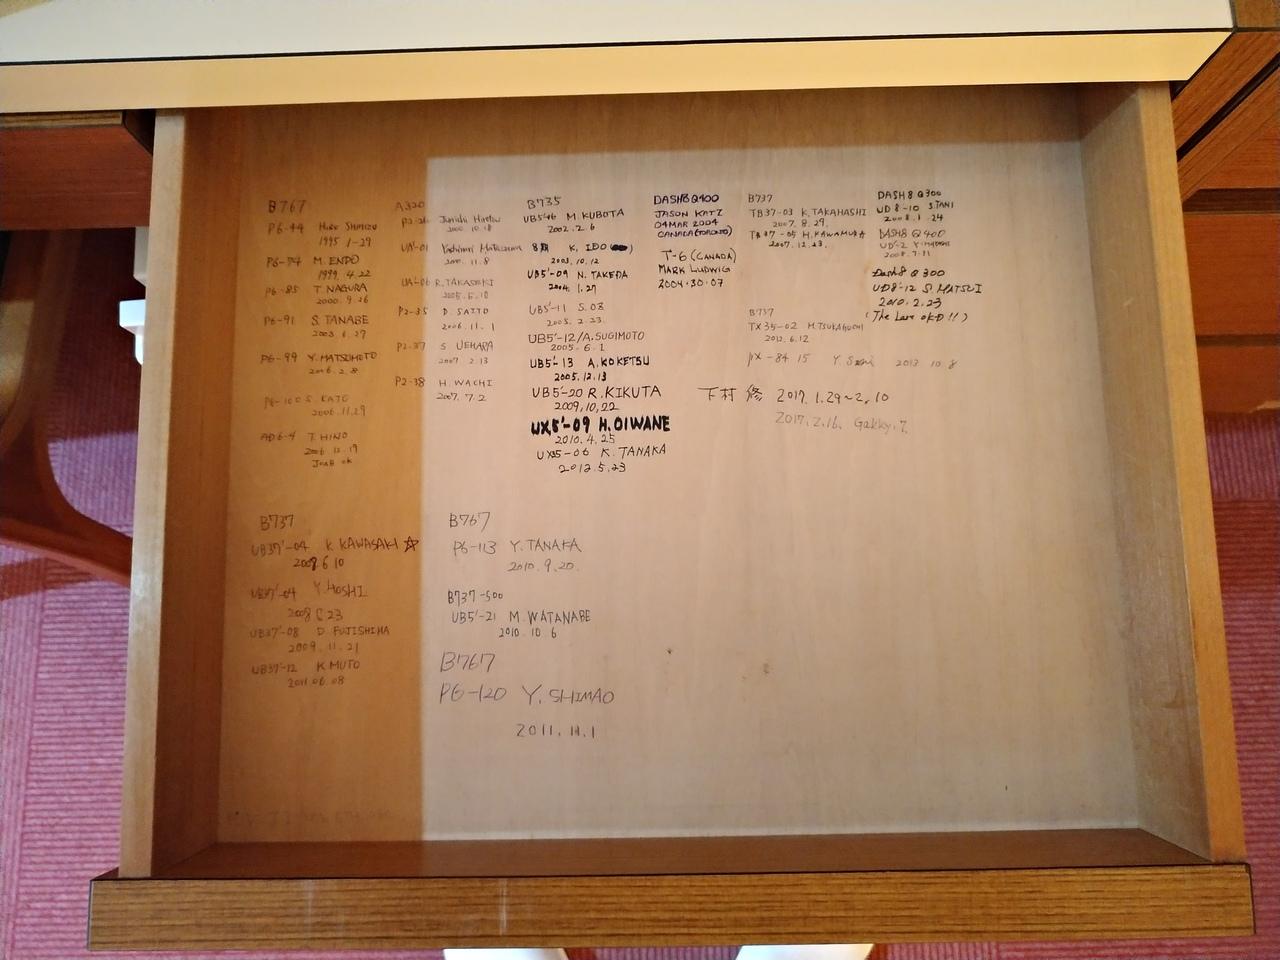 B767
P6-44 HIRO SHIMIZU
1995 1-29
P6-74 M. ENDO
1999. 4.22
P6-85 T. NAGURA
2000. 9.26
P6-91 S. TANABE
2003. 6.27
P6-99 Y. MATSUMOTO
2006. 2. 8
P6-100 S. KATO
2006. 11.29
AD6-4 T. HINO
2006 12.19
A320
2000. 10.18
2000. 11.8
UA'-06 R. TAKASEKI
2005. 5.10
P2-35 D. SAITO
2006. 11. 1
P2-37 S UEHARA
2007 2.13
P2-38 H. WACHI
2007. 7.2
B735
UB5'-6 M. KUBOTA
2002. 2. 6
K. IDO
2003. 10. 12
UB5'-09 N. TAKEDA
2004. 1.27
UB5'-11
2005. 2.23
UB5'-12/A.SUGIMOTO
2005. 6.1
UB5'-13 A.KOKETSU
2005.12.13
UB5'-20 R.KIKUTA
2009,10,22
UX5'-09 H.OIWANE
2010. 4. 25
UX35-06 K. TANAKA
2012.5.23
DASH8 Q400
JASON KATZ
04MAR 2004
CANADA(TORONTO)
T-6 (CANADA)
MARK LUDWIG
2004.30.07
B737
TB37-03 K.TAKAHASHI
2007. 8.29.
TB37-05 H.KAWAMURA
2007.12.23.
B737
TX35-02 M.TSUKAGUCHI
2012. 6.12
PX-84 15 2013 10 8
下村 修 2017. 1.29~2.10
2017.2.16. Gakky.7
DASH 8 Q300
UD8-10 S.TANI
2008.1.24
DASH8 Q400
UD'-2
2008.7.11
Dash8 Q300
UD8'-12 S.MATSUI
2010.2.23
(The Last OKD!!)
B737
UB37'-04 K KAWASAKI ☆
2008 6 10
UB37'-04 Y.HOSHI
2008 6 23
UB37'-08 D. FUJISHIMA
2009. 11. 21
UB37'-12 K MUTO
2011.06.08
B767
P6-113 Y. TANAKA
2010. 9. 20.
B737-500
UB5'-21 M. WATANABE
2010. 10. 6
B767
P6-120 Y. SHIMAO
2011. 11. 1